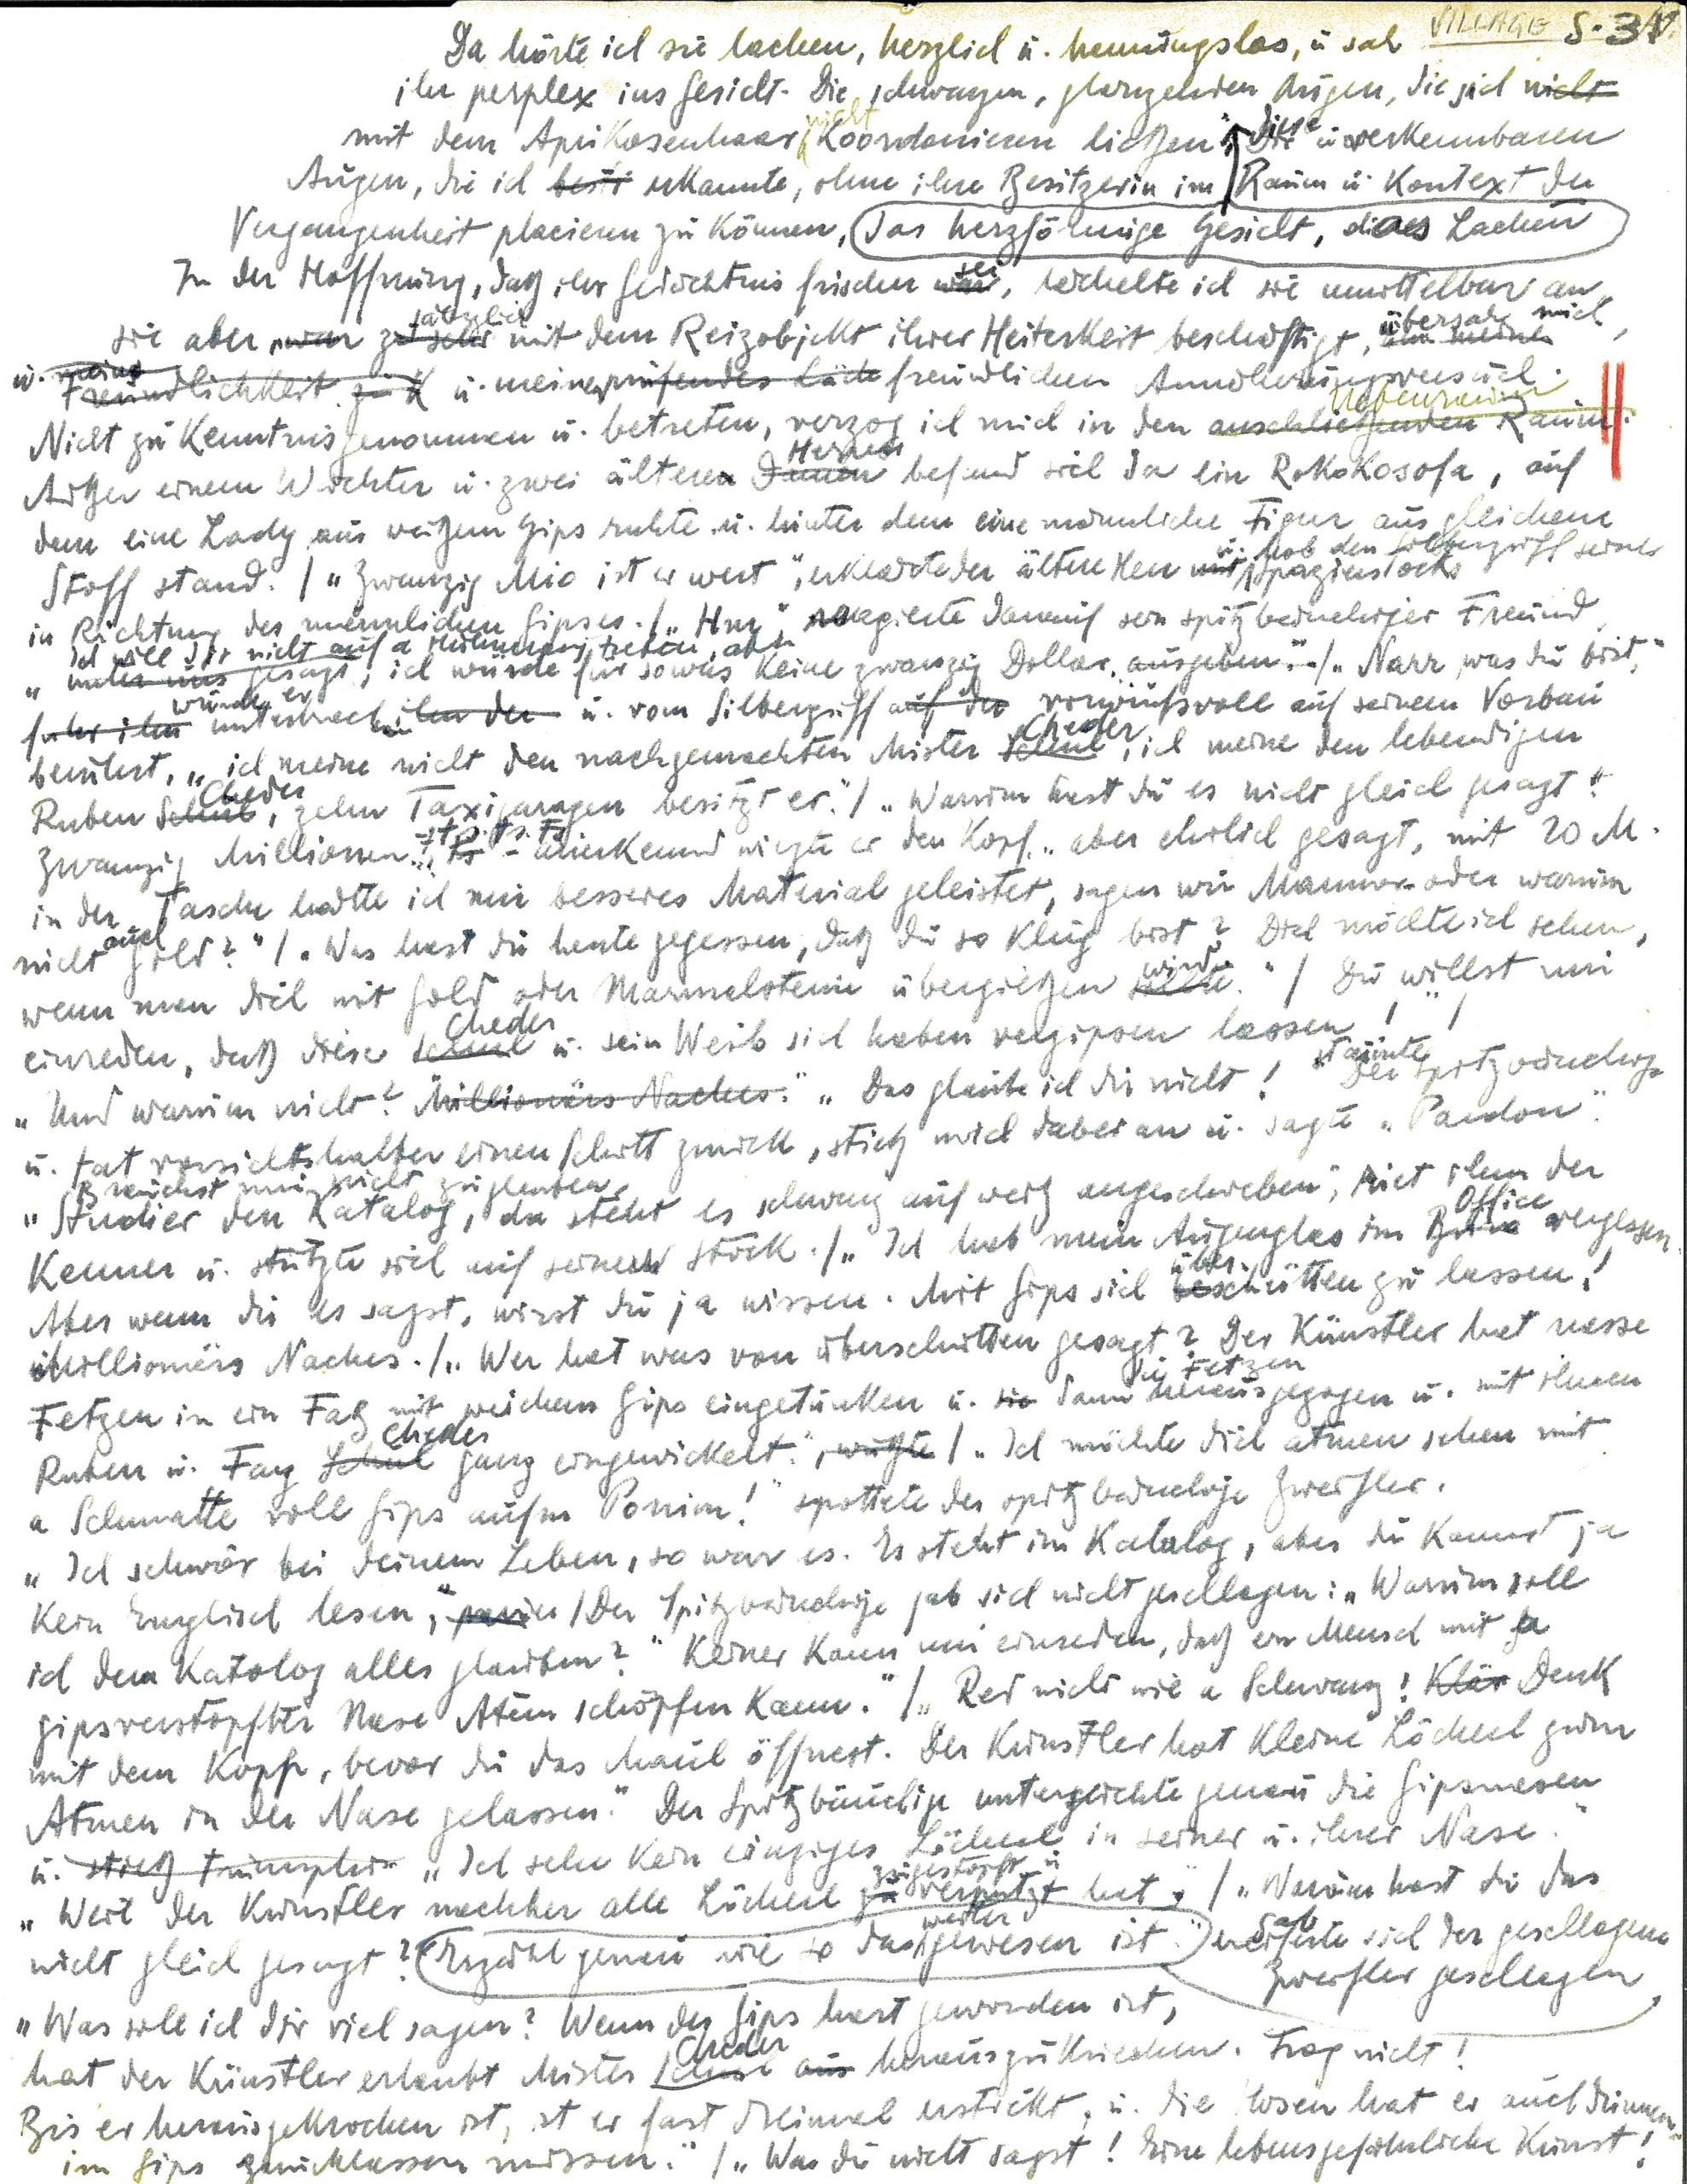 VILLAGE S. 3
Da hörte ich sie lachen, herzlich u. hemmungslos, u sah
ihr perplex ins Gesicht. Die schwarzen, glänzenden Augen, die sich nicht
mit dem Aprikosenhaar nicht koordinieren ließen, diese unverkennbaren
Augen, die ich erkannte, ohne ihre Besitzerin im Raum u. Kontext der
Vergangenheit placieren zu können, das herzförmige Gesicht, dieses Lachen
In der Hoffnung, daß ihr Gedächtnis frischer war sei, lächelte ich sie unmittelbar an,
sie aber, war zu sehr gänzlich mit dem Reizobjekt ihrer Heiterkeit beschäftigt, übersah mich,
u. meine Freundlichkeit u. meinen prüfendes freundlichen Annäherungsversuch.
Nicht zu Kenntnis genommen u. betreten, verzog ich mich in den anschließenden Raum Nebenraum.
Außer einem Wächter u. zwei älteren Damen Herren befand sich da ein Rokokosofa, auf
dem eine Lady aus weißem Gips ruhte u. hinter dem eine männliche Figur aus gleichem
Stoff stand. / „Zwanzig Mio ist er wert", erklärte der ältere Herr mit u. hob den Silbergriff seines Spazierstocks
in Richtung des männlichen Gipses. / „Hm" reagierte darauf sein spitzbäuchiger Freund,
„Ich will dir nicht auf a Hühneraug treten, aber unter uns gesagt, ich würde für sowas keine zwanzig Dollar ausgeben." / „Narr, was du bist,"
fuhr ihm wurde er unterbrochen ihn der u. vom Silbergriff auf der vorwurfsvoll auf seinem Vorbau
berührt, „ich meine nicht den nachgemachten Mister Schul Cheder, ich meine den lebendigen
Ruben Schul Cheder, zehn Taxigaragen besitzt er." / „Warum hast du es nicht gleich gesagt?
Zwanzig Millionen - anerkennend wiegte er den Kopf „aber ehrlich gesagt, mit 20 M.
in der Tasche hätte ich mir besseres Material geleistet, sagen wir Marmor oder warum
nicht auch Gold?" / „Was hast du heute gegessen, daß du so klug bist? Dich möchte ich sehen,
wenn man dich mit Gold oder Marmelstein übergießen sollte wird." / Du willst mir
einreden, daß diese Schul Cheder u. sein Weib sich haben vergipsen lassen! /
„Und warum nicht? Millionärs Naches." „Das glaube ich dir nicht! staunte der Spitzbäuchige
u. tat vorsichtshalber einen Schritt zurück, stieß mich dabei an u. sagte „Pardon".
„Brauchst mir nicht zu glauben, Studier den Katalog, da steht es schwarz auf weiß angeschrieben", riet ihm der
Kenner u. stützte sich auf seinen Stock. / „Ich hab mein Augenglas im Büro Office vergessen.
Aber wenn du es sagst, wirst du ja wissen. Mit Gips sich beschütten über zu lassen!
Millionärs Naches. / „Wer hat was von überschütten gesagt? Der Künstler hat nasse
Fetzen in ein Faß mit weichem Gips eingetunken u. sie dann die Fetzen herausgezogen u. mit ihnen
Ruben u. Fay Schul Cheder ganz eingewickelt.", wußte / „Ich möchte dich atmen sehen mit
a Schmatte voll Gips aufm Ponim!" spottete der spitzbäuchige Zweifler.
„Ich schwör bei deinem Leben, so war es. Es steht im Katalog, aber du kannst ja
kein Englisch lesen," / Der Spitzbäuchige gab sich nicht geschlagen: „Warum soll
ich dem Katalog alles glauben?" Keiner kann mir einreden, daß ein Mensch mit a
gipsverstopfter Nase Atem schöpfen kann." / „Red nicht wie a Schwanz! Klär Denk
mit dem Kopf, bevor du das Maul öffnest. Der Künstler hat kleine Löcherl zum
Atmen in der Nase gelassen." Der Spitzbäuchige untersuchte genau die Gipsnasen
u. stieß triumphir „Ich sehe kein einziges Löcherl in seiner u. ihrer Nase."
„Weil der Künstler nachher alle Löcherl zu zugestopft u verputzt hat." / „Warum hast du das
nicht gleich gesagt? Erzähl genau wie so das weiter gewesen ist." ereiferte gab sich der geschlagene
Zweifler geschlagen
„Was soll ich dir viel sagen? Wenn der Gips hart geworden ist,
hat der Künstler erlaubt Mister Schul Cheder aus herauszukriechen. Frag nicht!
Bis er herausgekrochen ist, ist er fast dreimal erstickt, u. die Hosen hat er auch drinnen
im Gips zurücklassen müssen." / „Was du nicht sagst! Eine lebensgefährliche Kunst!